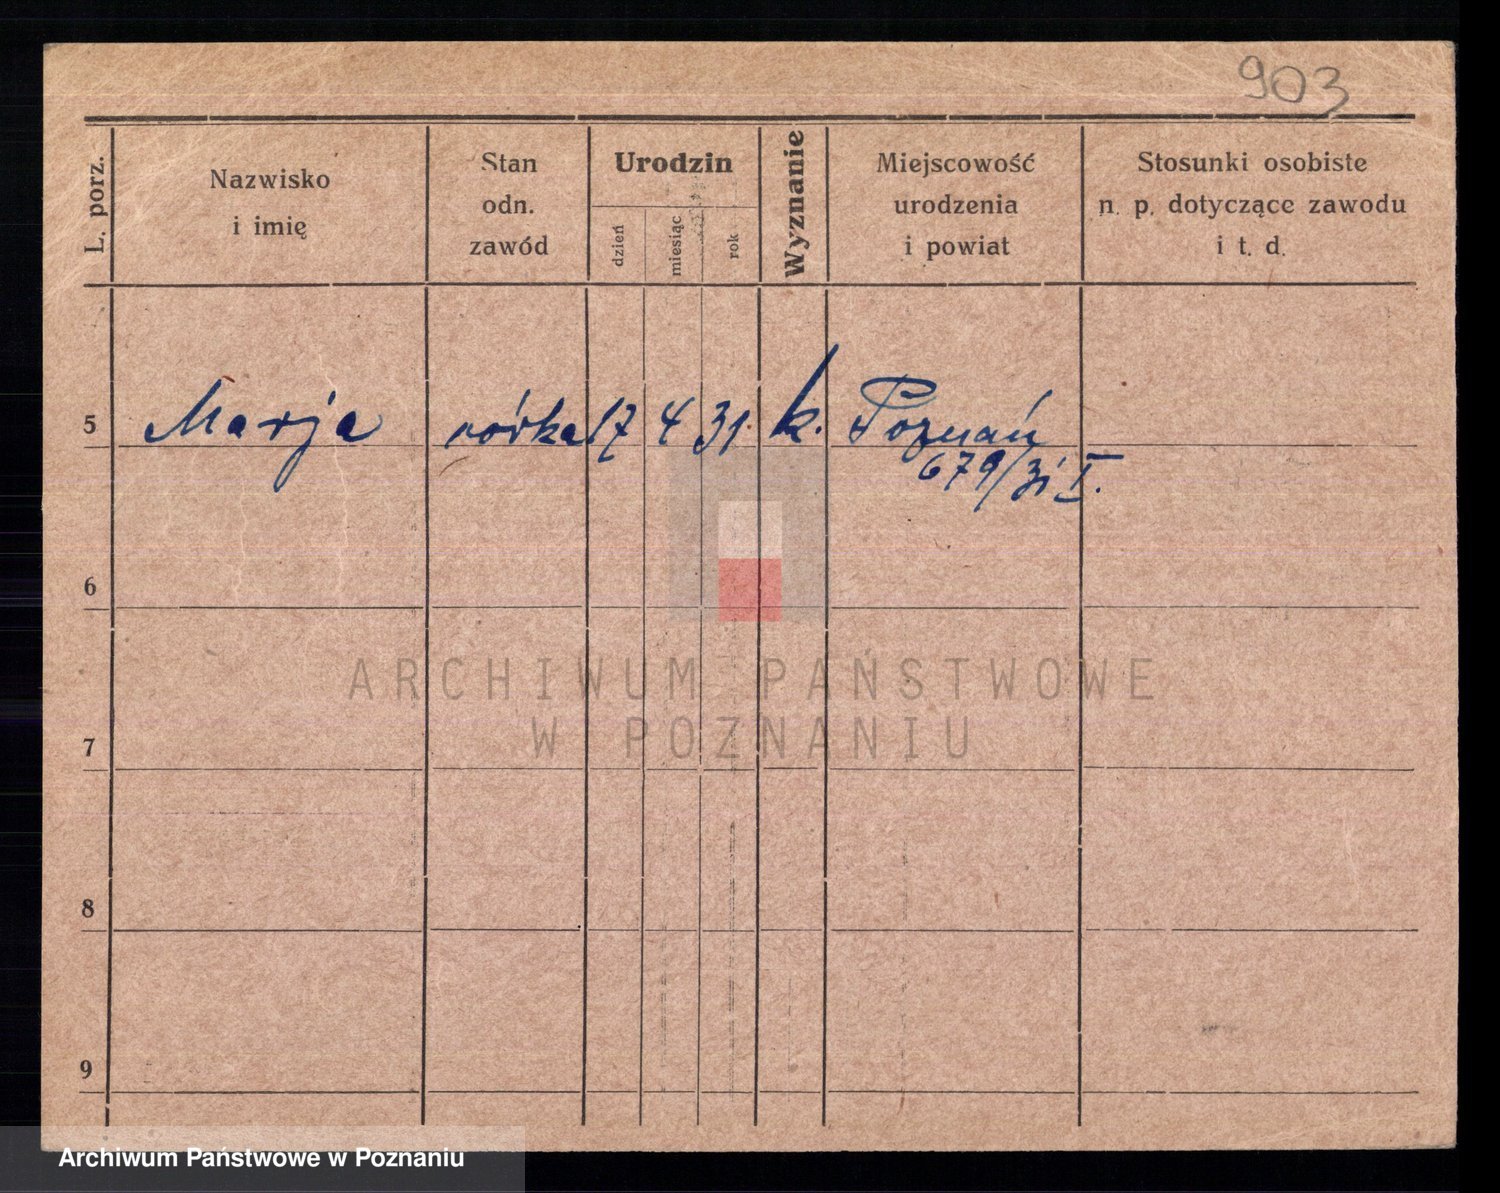 903
L. porz.
Nazwisko
i imię
Stan
odn.
zawód
Urodzin
dzień
miesiąc
rok
Wyznanie
Miejscowość
urodzenia
i powiat
Stosunki osobiste
n. p. dotyczące zawodu
i t. d.
5 Marja córka 17 4 31. k. Poznań
679/31 I.
6
7
8
9
ARCHIWUM PAŃSTWOWE
W POZNANIU
Archiwum Państwowe w Poznaniu